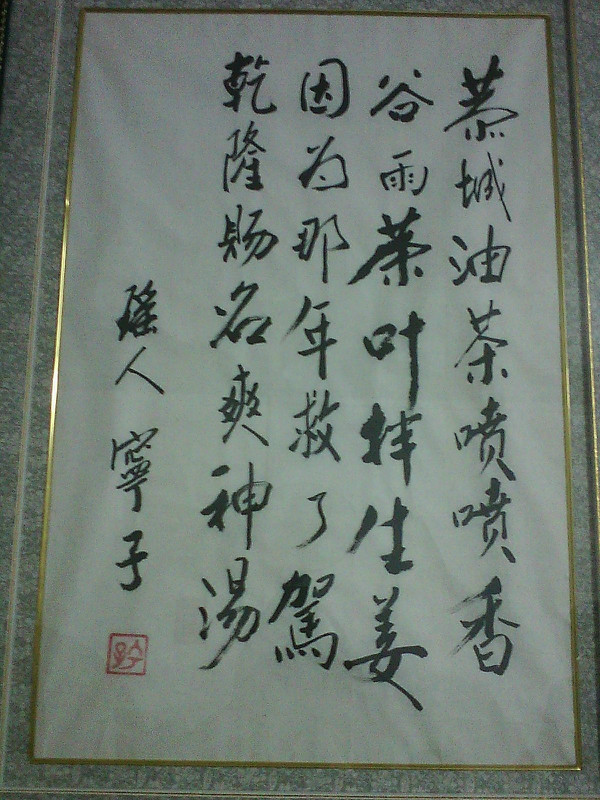 恭城油茶喷喷香
谷雨茶叶拌生姜
因为那年救了驾
乾隆赐名爽神汤
瑶人寧子